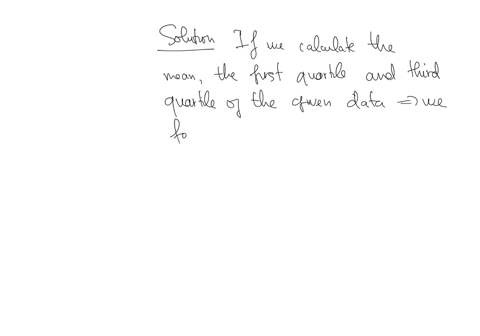 Solution If we calculate the
mean, the first quartile and third
quartile of the given data => we
fo